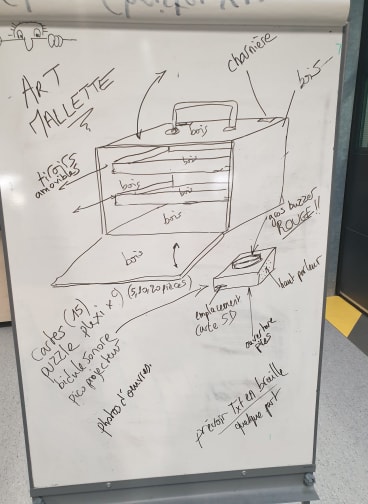 ART
MALLETTE
charnière
bois
bois
tiroirs
amovibles
bois
bois
bois
bois
bois
bois
gros buzzer
ROUGE!!
haut parleur
emplacement
carte SD
ouverture
piles
cartes (15)
puzzle plexi x 9 (5,10,20 pièces)
bidule sonore
pico projecteur
photos d'oeuvres
prévoir Txt en braille
quelque part